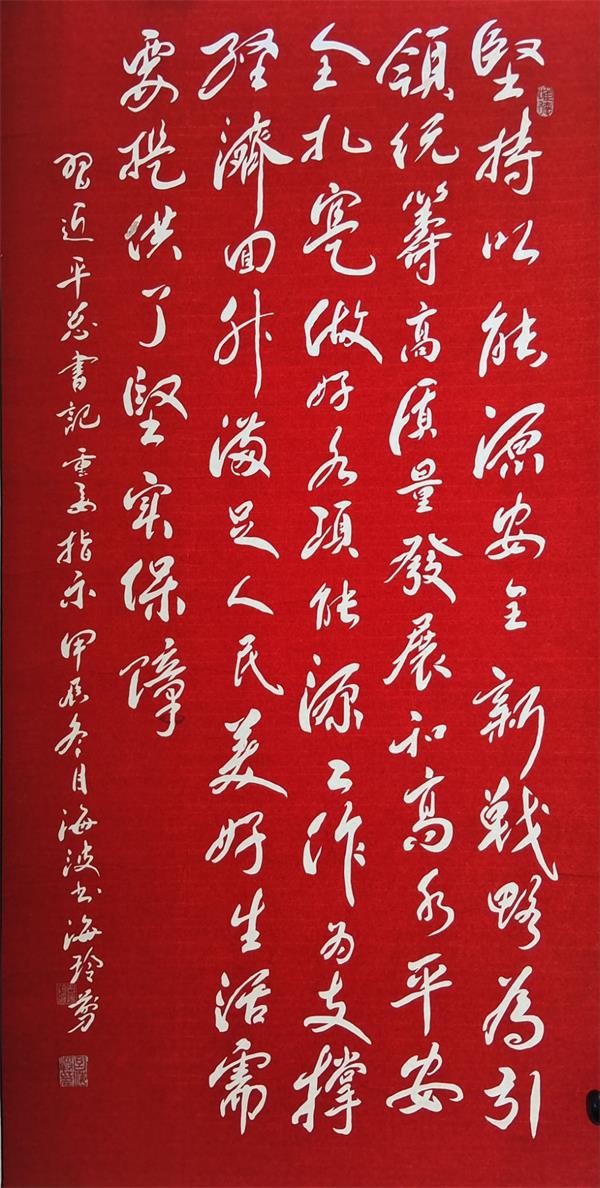 堅持以能源安全新戰略為引
領统籌高质量發展和高水平安
全扎寔做好各项能源工作为支撑
經濟回升滿足人民美好生活需
要提供了堅実保障
習近平总書記重要指示甲辰冬月海波书海玲剪